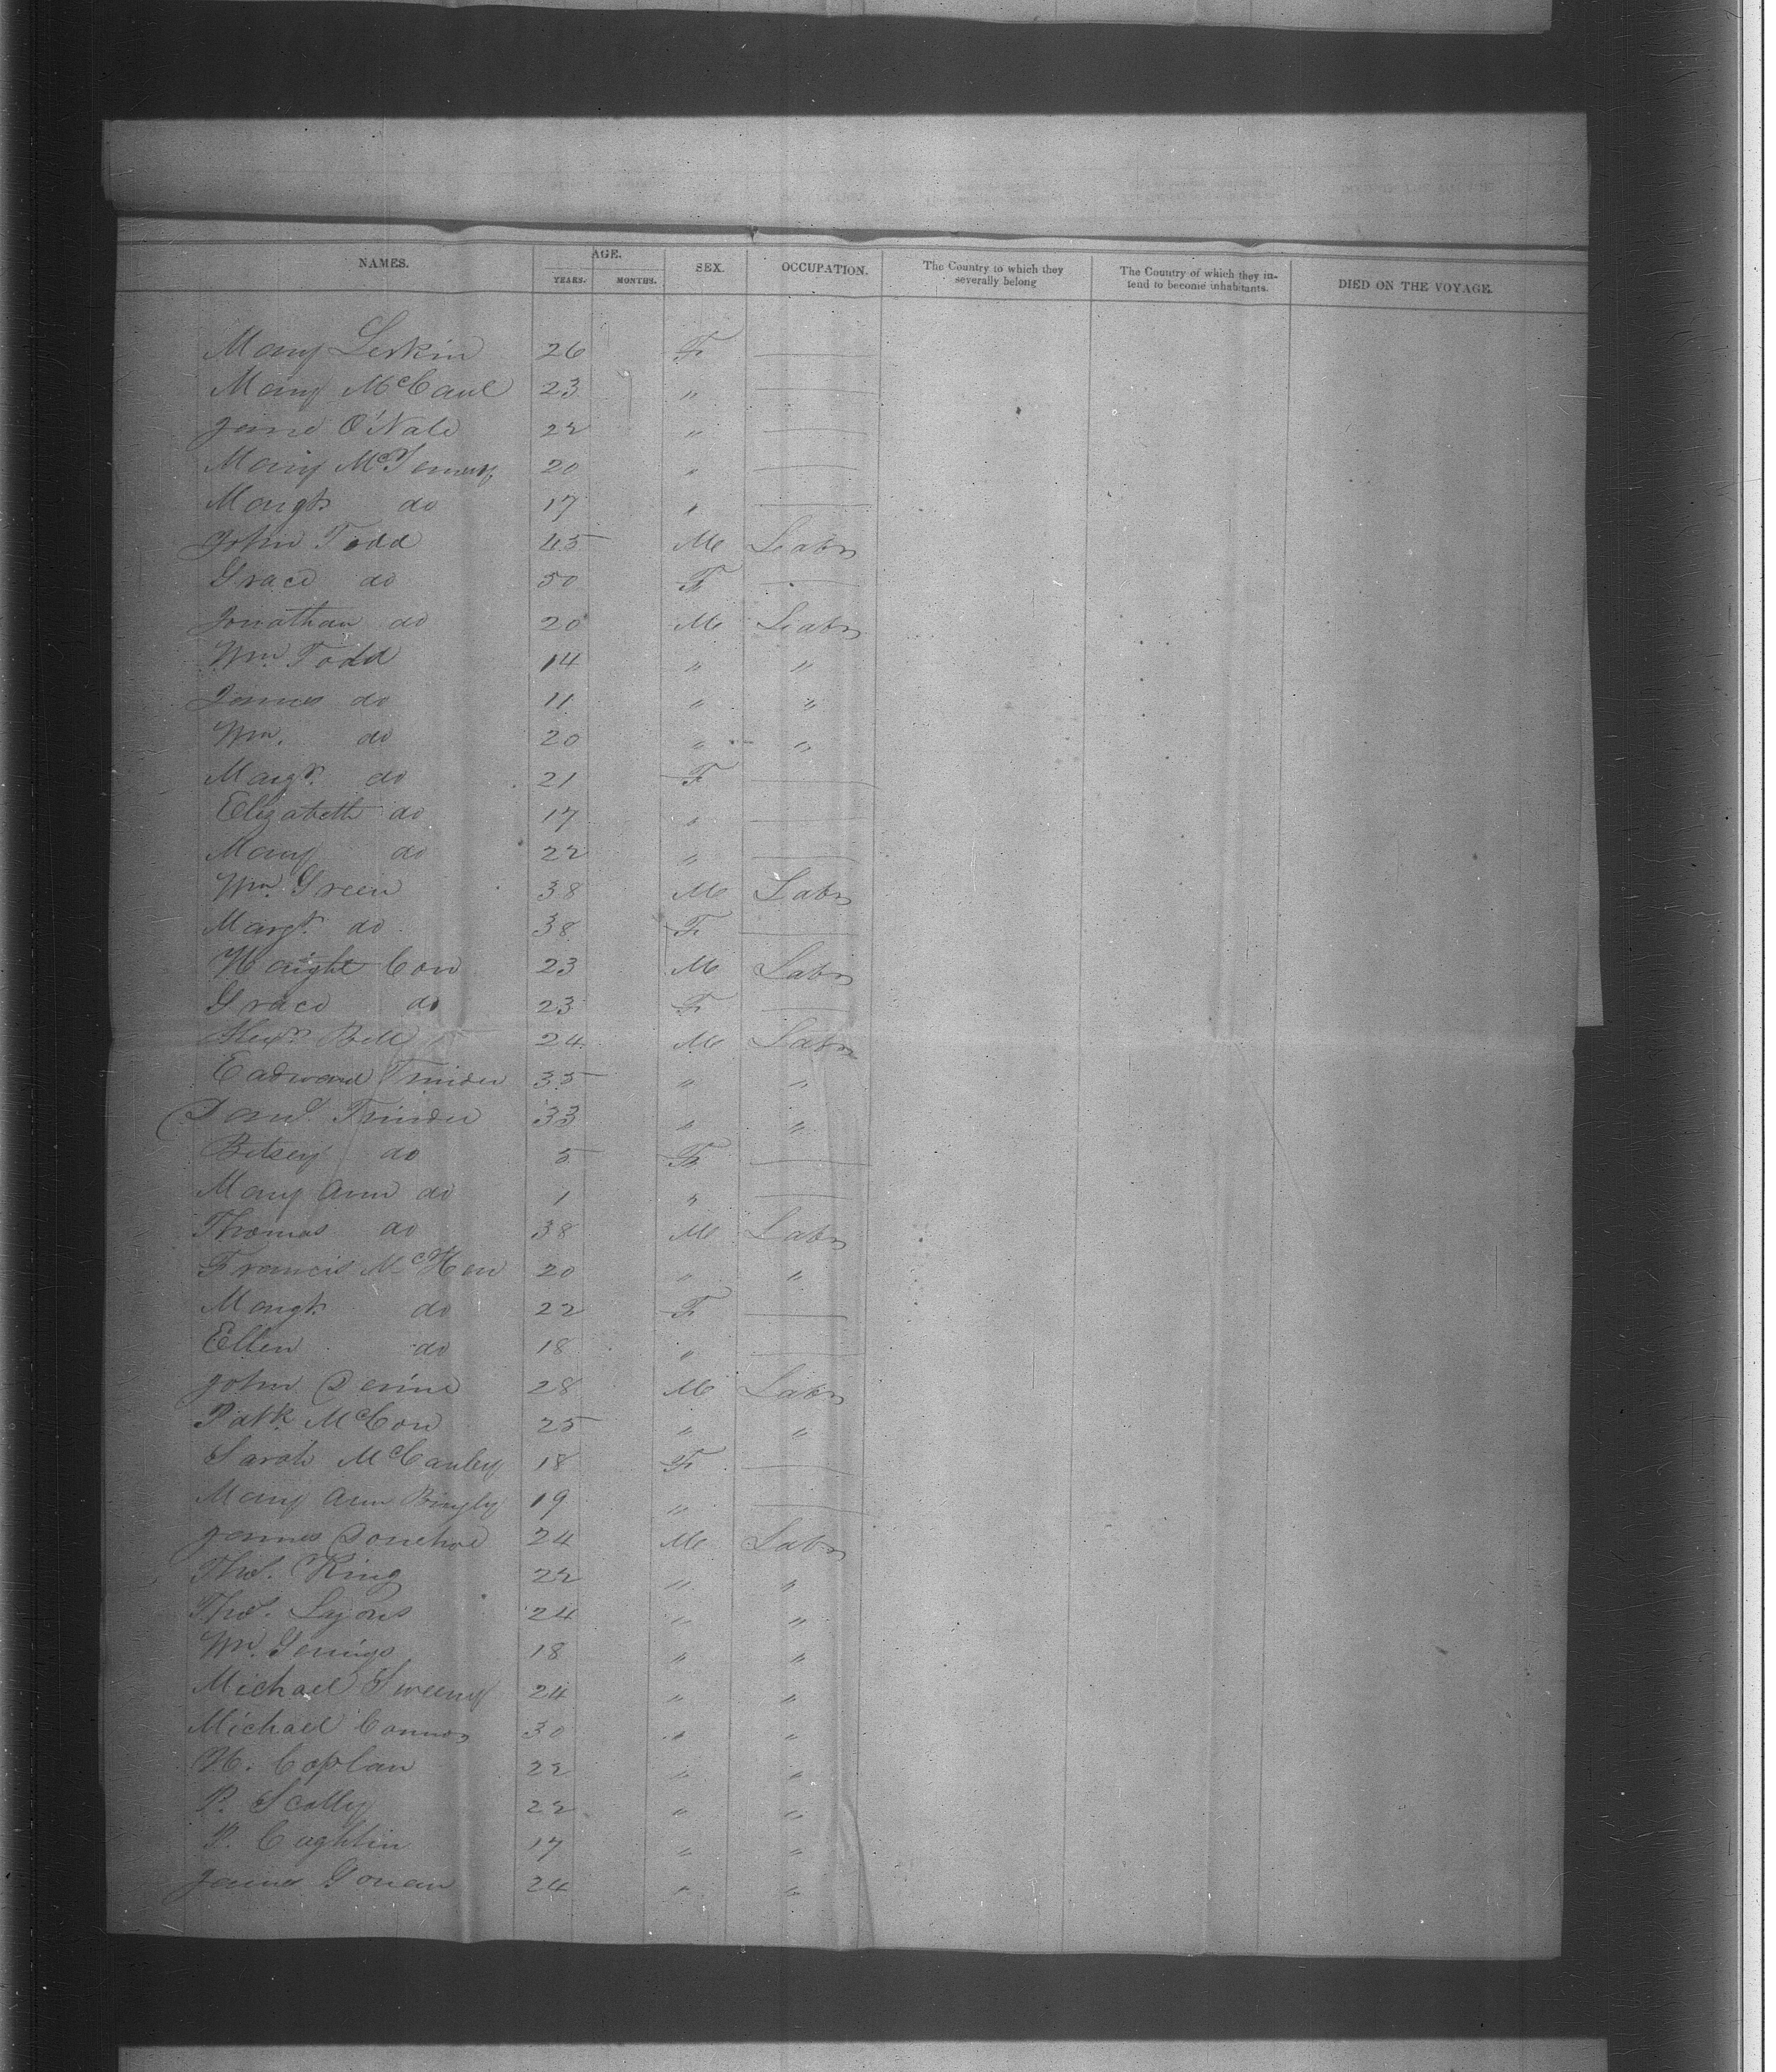 NAMES. AGE. SEX. OCCUPATION. The Country to which they severally belong The Country of which they in-tend to become inhabitants. DIED ON THE VOYAGE.
YEARS. MONTHS.
Mary Lerkin 26 F —
Mary McCaul 23 " —
Jane O'Nale 22 " —
Mary 20 " —
Margt do 17 " —
John Todd 45 M Labr
Grace do 50 F —
Jonathan do 20 M Labr
Wm. Todd 14 " "
James do 11 " "
Wm. do 20 " "
Margt. do 21 F —
Elizabeth do 17 " —
Mary do 22 " —
Wm. Green 38 M Labr
Margt. do 38 F —
Haight Con 23 M Labr
Grace do 23 F —
Bell 24 M Labr
Eadward Trinder 35 " "
Danl. Trinder 33 " "
Betsey do 5 F —
Mary Ann do 1 " —
Thomas do 38 M Labr
Francis McHew 20 " "
Margt. do 22 F —
Ellen do 18 " —
John Devine 28 M Labr
Patk McCon 25 " "
Sarah McCauley 18 F —
Mary Ann Bingly 19 " —
James Donehoe 24 M Labr
Thos. King 22 " "
Thos. Lyons 24 " "
Wm. Jenings 18 " "
Michael Sweeny 24 " "
Michael Connor 30 " "
H. Coplan 22 " "
P. Scolly 22 " "
P. Coghlin 17 " "
James Gonan 24 " "